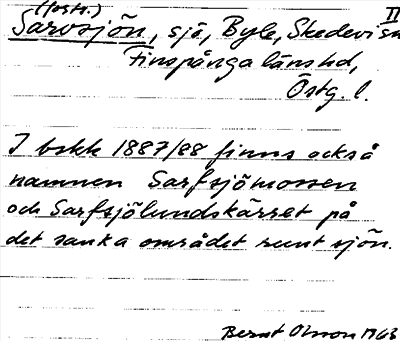 (forts.) II
Sarvsjön, sjö, Byle, Skedevi sn
Finspånga länshd,
Östg. l.
I bskk 1887/88 finns också
namnen Sarfsjömossen
och Sarfsjölundskärret på
det sanka området runt sjön.
Bernt Olsson 1963